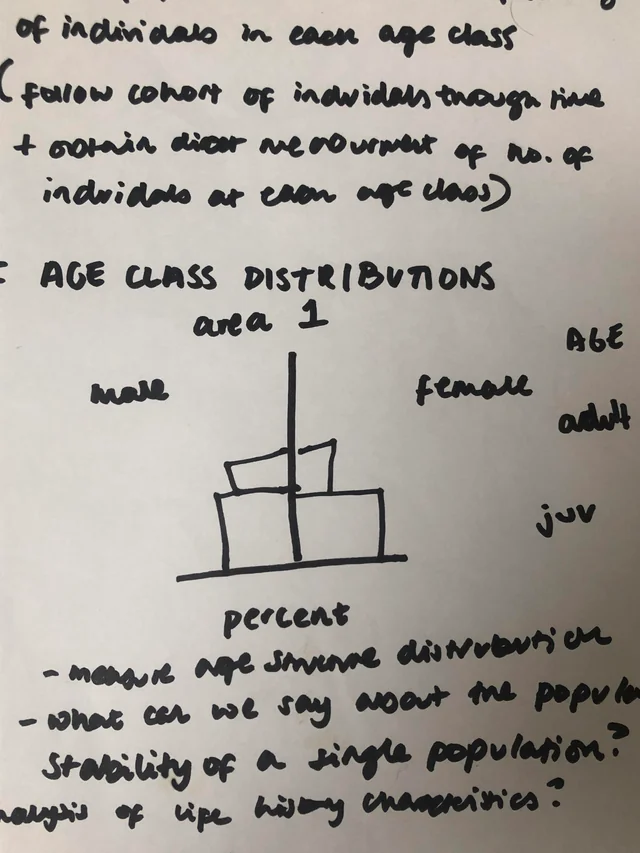 of individals in each age class
( follow cohort of indvidals through time
+ obtain direct measurment of no. of
indvidals at each age class)
AGE CLASS DISTRIBUTIONS
area 1
AGE
male female
adult
juv
percent
- measure age structure distrubution
- what can we say about the popula
stability of a single population?
nalysis of life history characteristics?